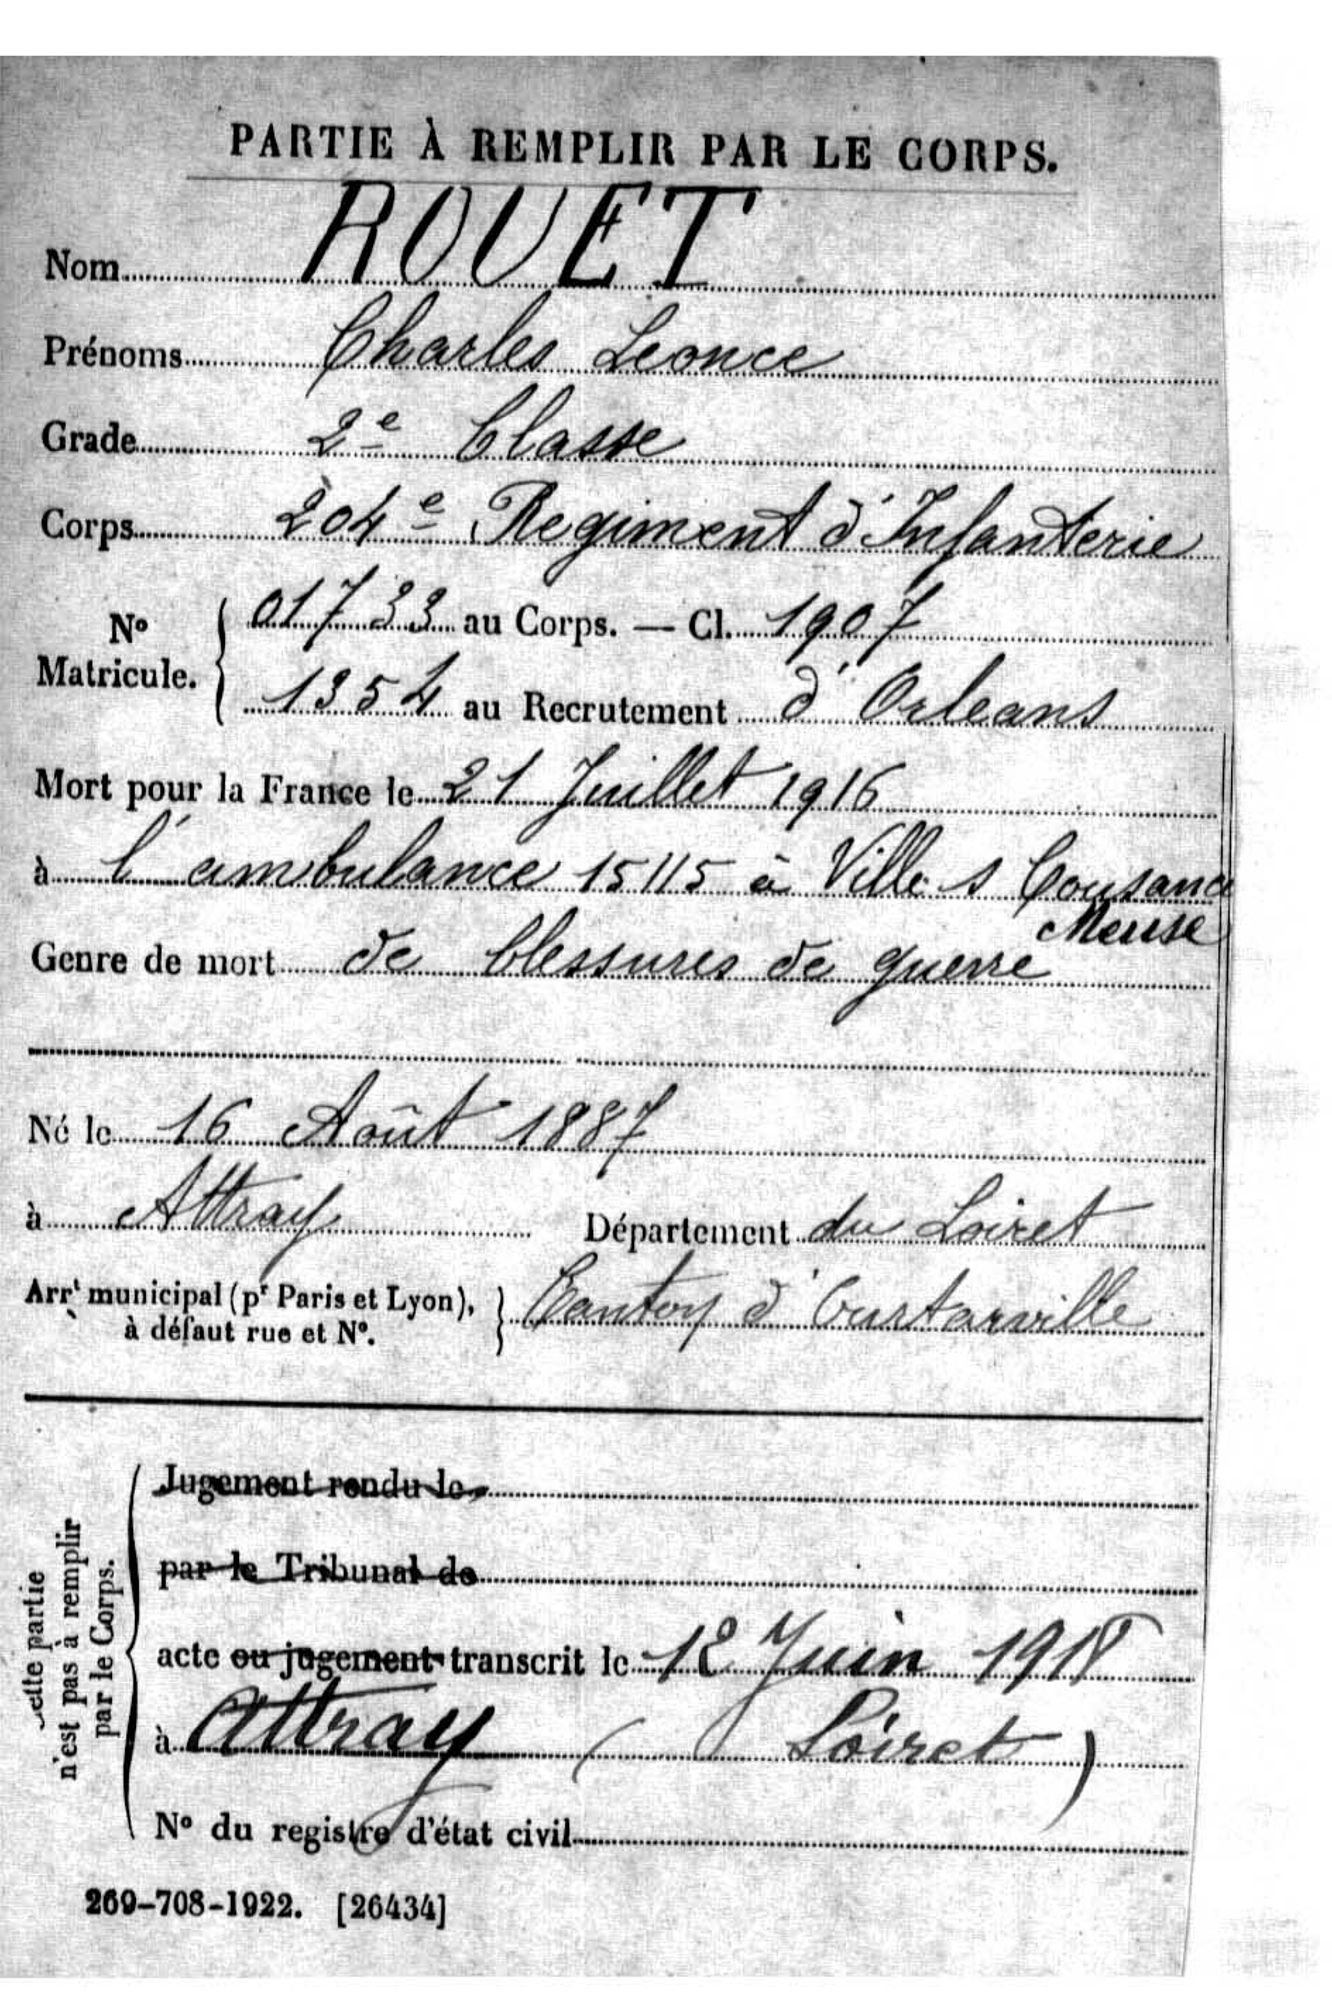 PARTIE À REMPLIR PAR LE CORPS.
Nom ROUET
Prénoms Charles Leonce
Grade 2e Classe
Corps 204e Regiment d'Infanterie
No Matricule. 01733 au Corps. — Cl. 1907
1354 au Recrutement d'Orleans
Mort pour la France le 21 Juillet 1916
à l'ambulance 15/15 à Ville s Cousance
Meuse
Genre de mort de blessures de guerre
Né le 16 Août 1887
à Attray Département du Loiret
Arrt municipal (pr Paris et Lyon),
à défaut rue et No.
Canton d'Outarville
Cette partie
n'est pas à remplir
par le Corps.
Jugement rendu le
par le Tribunal de
acte ou jugement transcrit le 12 Juin 1918
à Attray (Loiret)
No du registre d'état civil
269-708-1922. [26434]